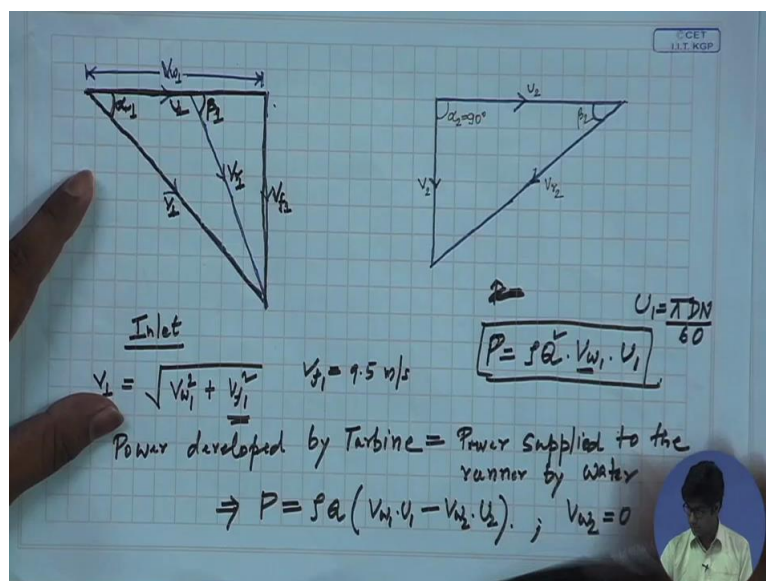 ©CET
I.I.T. KGP
Vw1
α1
U1
β1
Vr1
V1
Vf1
U2
α2=90°
β2
V2
Vr2
Inlet
U1 = πDN/60
P = ρQ · Vw1 · U1
V1 = √(Vw1² + Vf1²)
Vf1 = 9.5 m/s
Power developed by Turbine = Power supplied to the
runner by water
⇒ P = ρQ (Vw1·U1 − Vw2·U2). ; Vw2 = 0